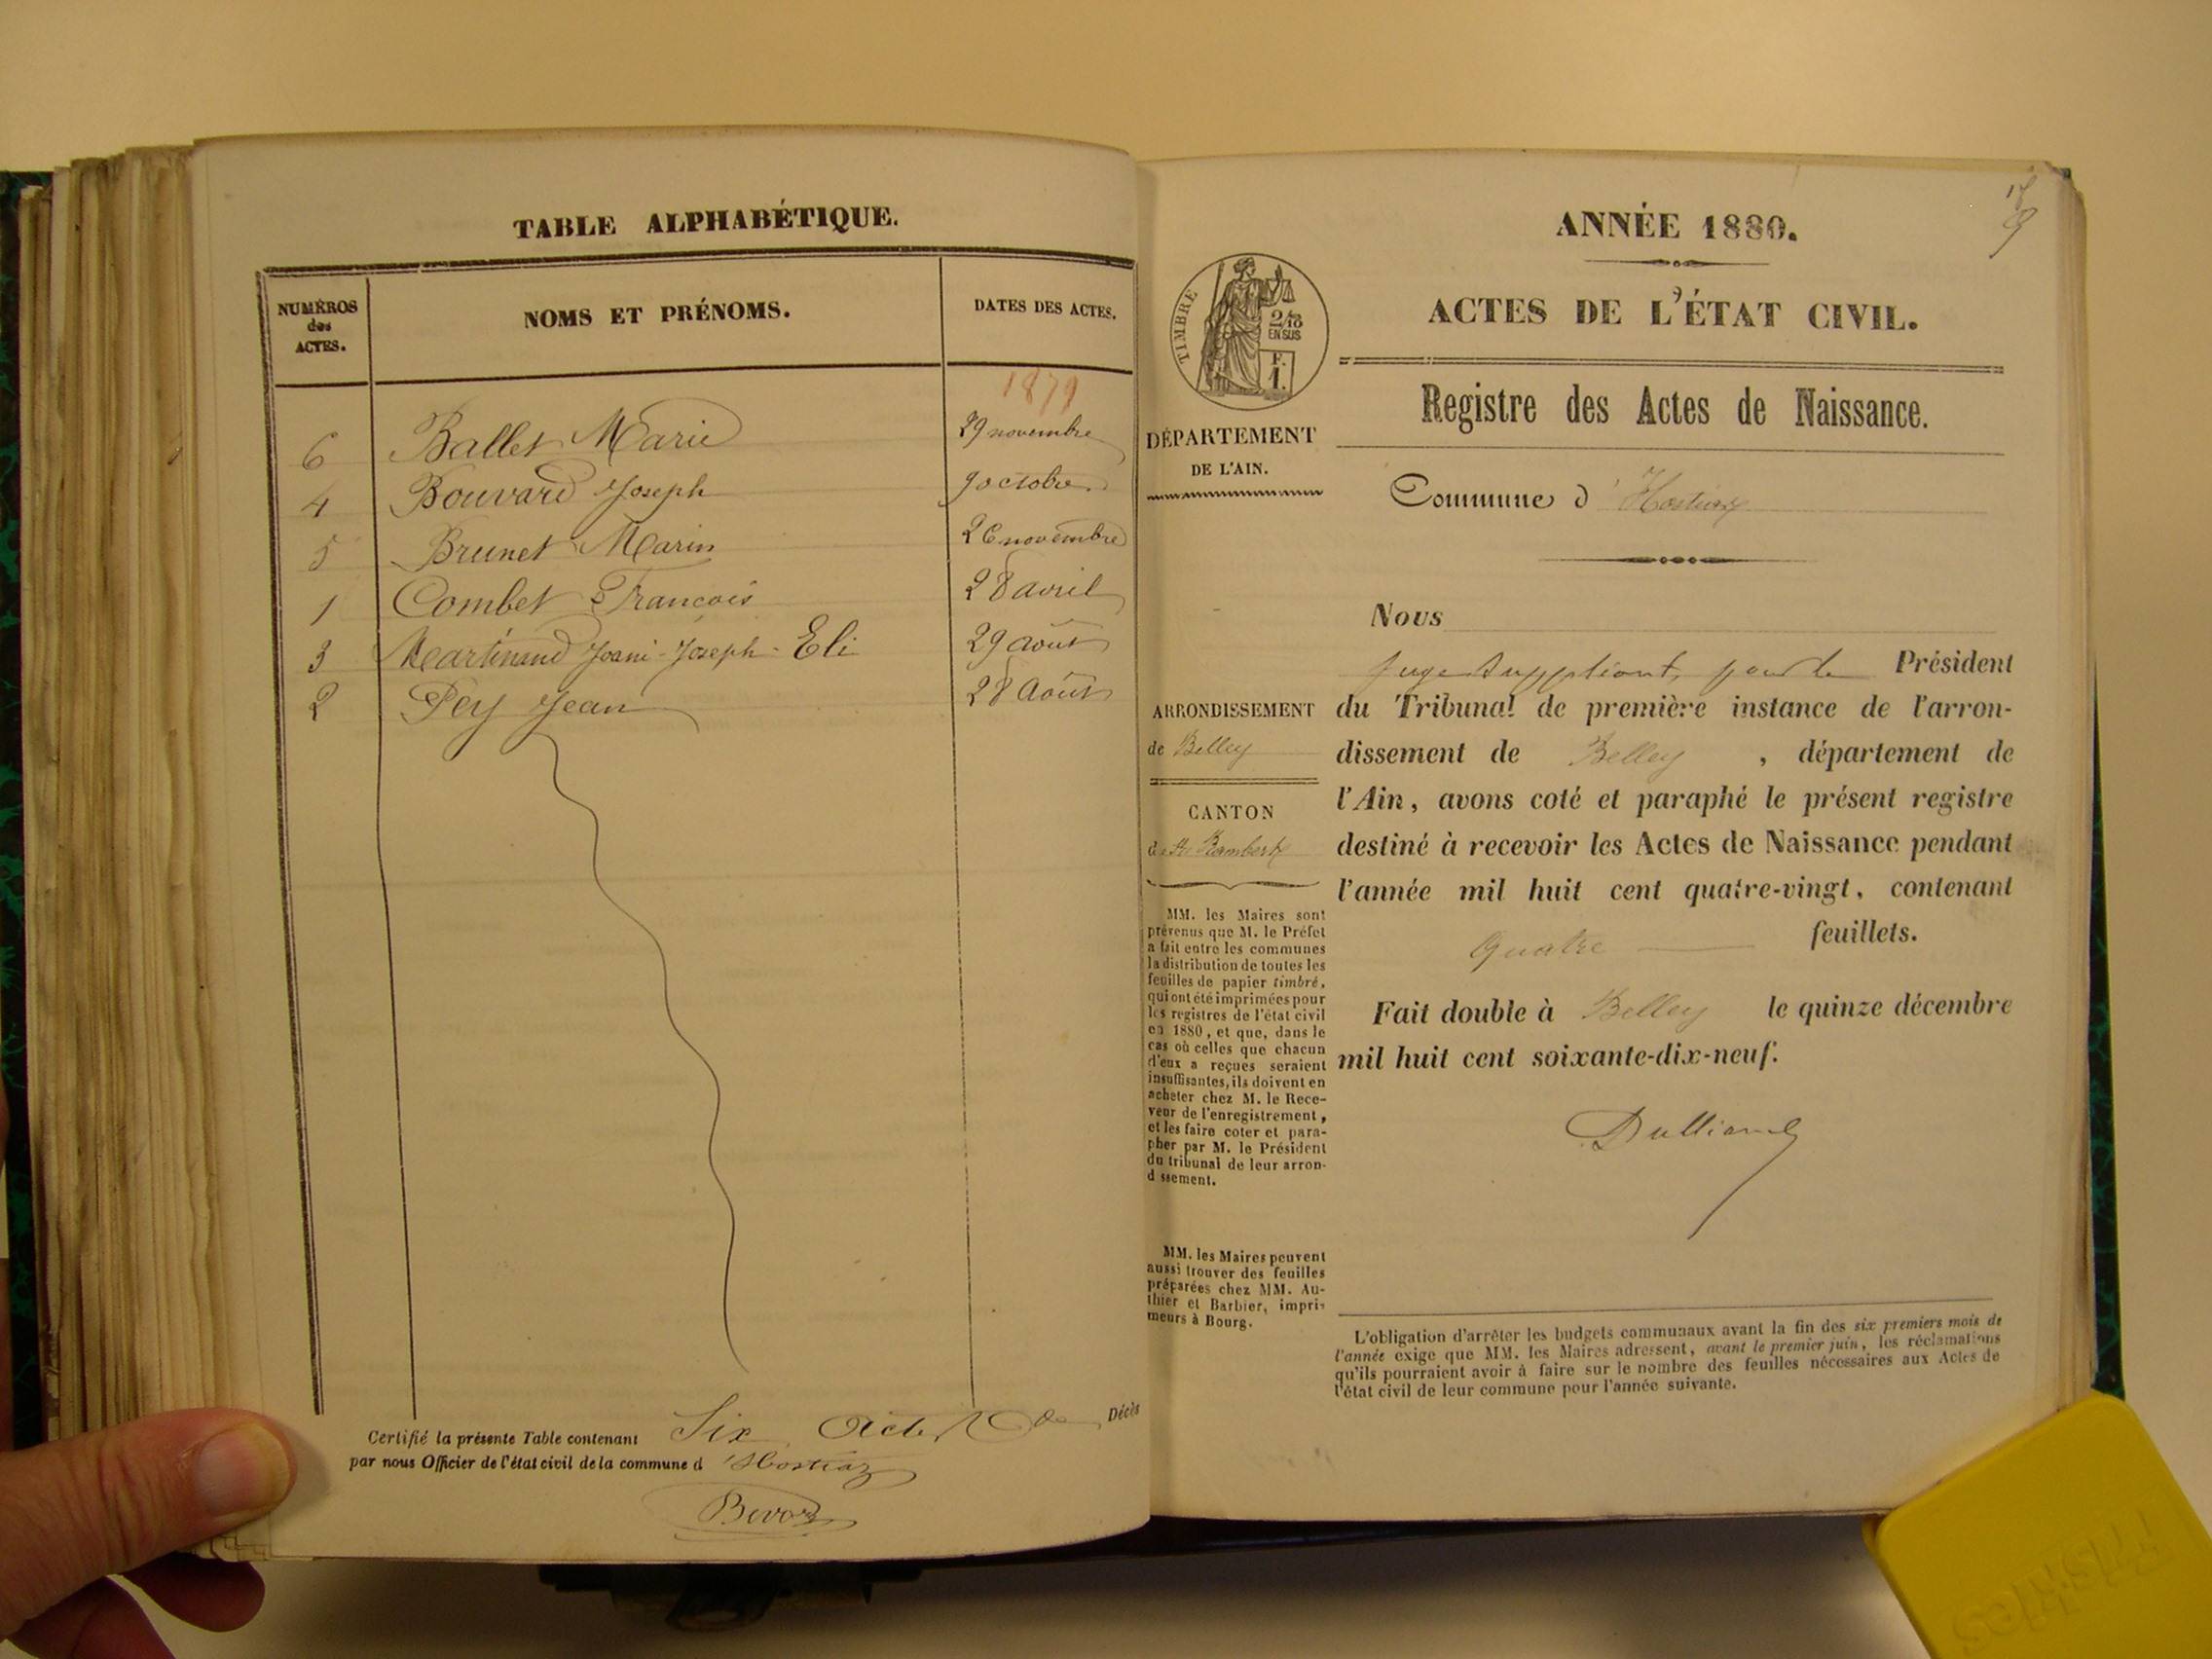 TABLE ALPHABÉTIQUE.
NUMÉROS
des
ACTES.
NOMS ET PRÉNOMS.
DATES DES ACTES.
1879
6 Ballet Marie 29 novembre
4 Bouvard Joseph 9 octobre
5 Brunet Marin 26 novembre
1 Combet François 28 avril
3 Martinand Joani-Joseph-Eli 29 août
2 Pey Jean 28 Août
Certifié la présente Table contenant Six Actes de Décès
par nous Officier de l'état civil de la commune d'Hostiaz
Bevoz
ANNÉE 1880.
ACTES DE L'ÉTAT CIVIL.
TIMBRE
2/10
EN SUS
F.
1.
DÉPARTEMENT
DE L'AIN.
ARRONDISSEMENT
de Belley
CANTON
de St Rambert
MM. les Maires sont
prévenus que M. le Préfet
a fait entre les communes
la distribution de toutes les
feuilles de papier timbré,
qui ont été imprimées pour
les registres de l'état civil
en 1880, et que, dans le
cas où celles que chacun
d'eux a reçues seraient
insuffisantes, ils doivent en
acheter chez M. le Rece-
veur de l'enregistrement,
et les faire coter et para-
pher par M. le Président
du tribunal de leur arron-
d ssement.
MM. les Maires peuvent
aussi trouver des feuilles
préparées chez MM. Au-
thier et Barbier, impri-
meurs à Bourg.
Registre des Actes de Naissance.
Commune d'Hostiaz
Nous
juge suppléant, pour le Président
du Tribunal de première instance de l'arron-
dissement de Belley, département de
l'Ain, avons coté et paraphé le présent registre
destiné à recevoir les Actes de Naissance pendant
l'année mil huit cent quatre-vingt, contenant
quatre feuillets.
Fait double à Belley le quinze décembre
mil huit cent soixante-dix-neuf.
Dulliand
L'obligation d'arrêter les budgets communaux avant la fin des six premiers mois de
l'année exige que MM. les Maires adressent, avant le premier juin, les réclamations
qu'ils pourraient avoir à faire sur le nombre des feuilles nécessaires aux Actes de
l'état civil de leur commune pour l'année suivante.
Friskies